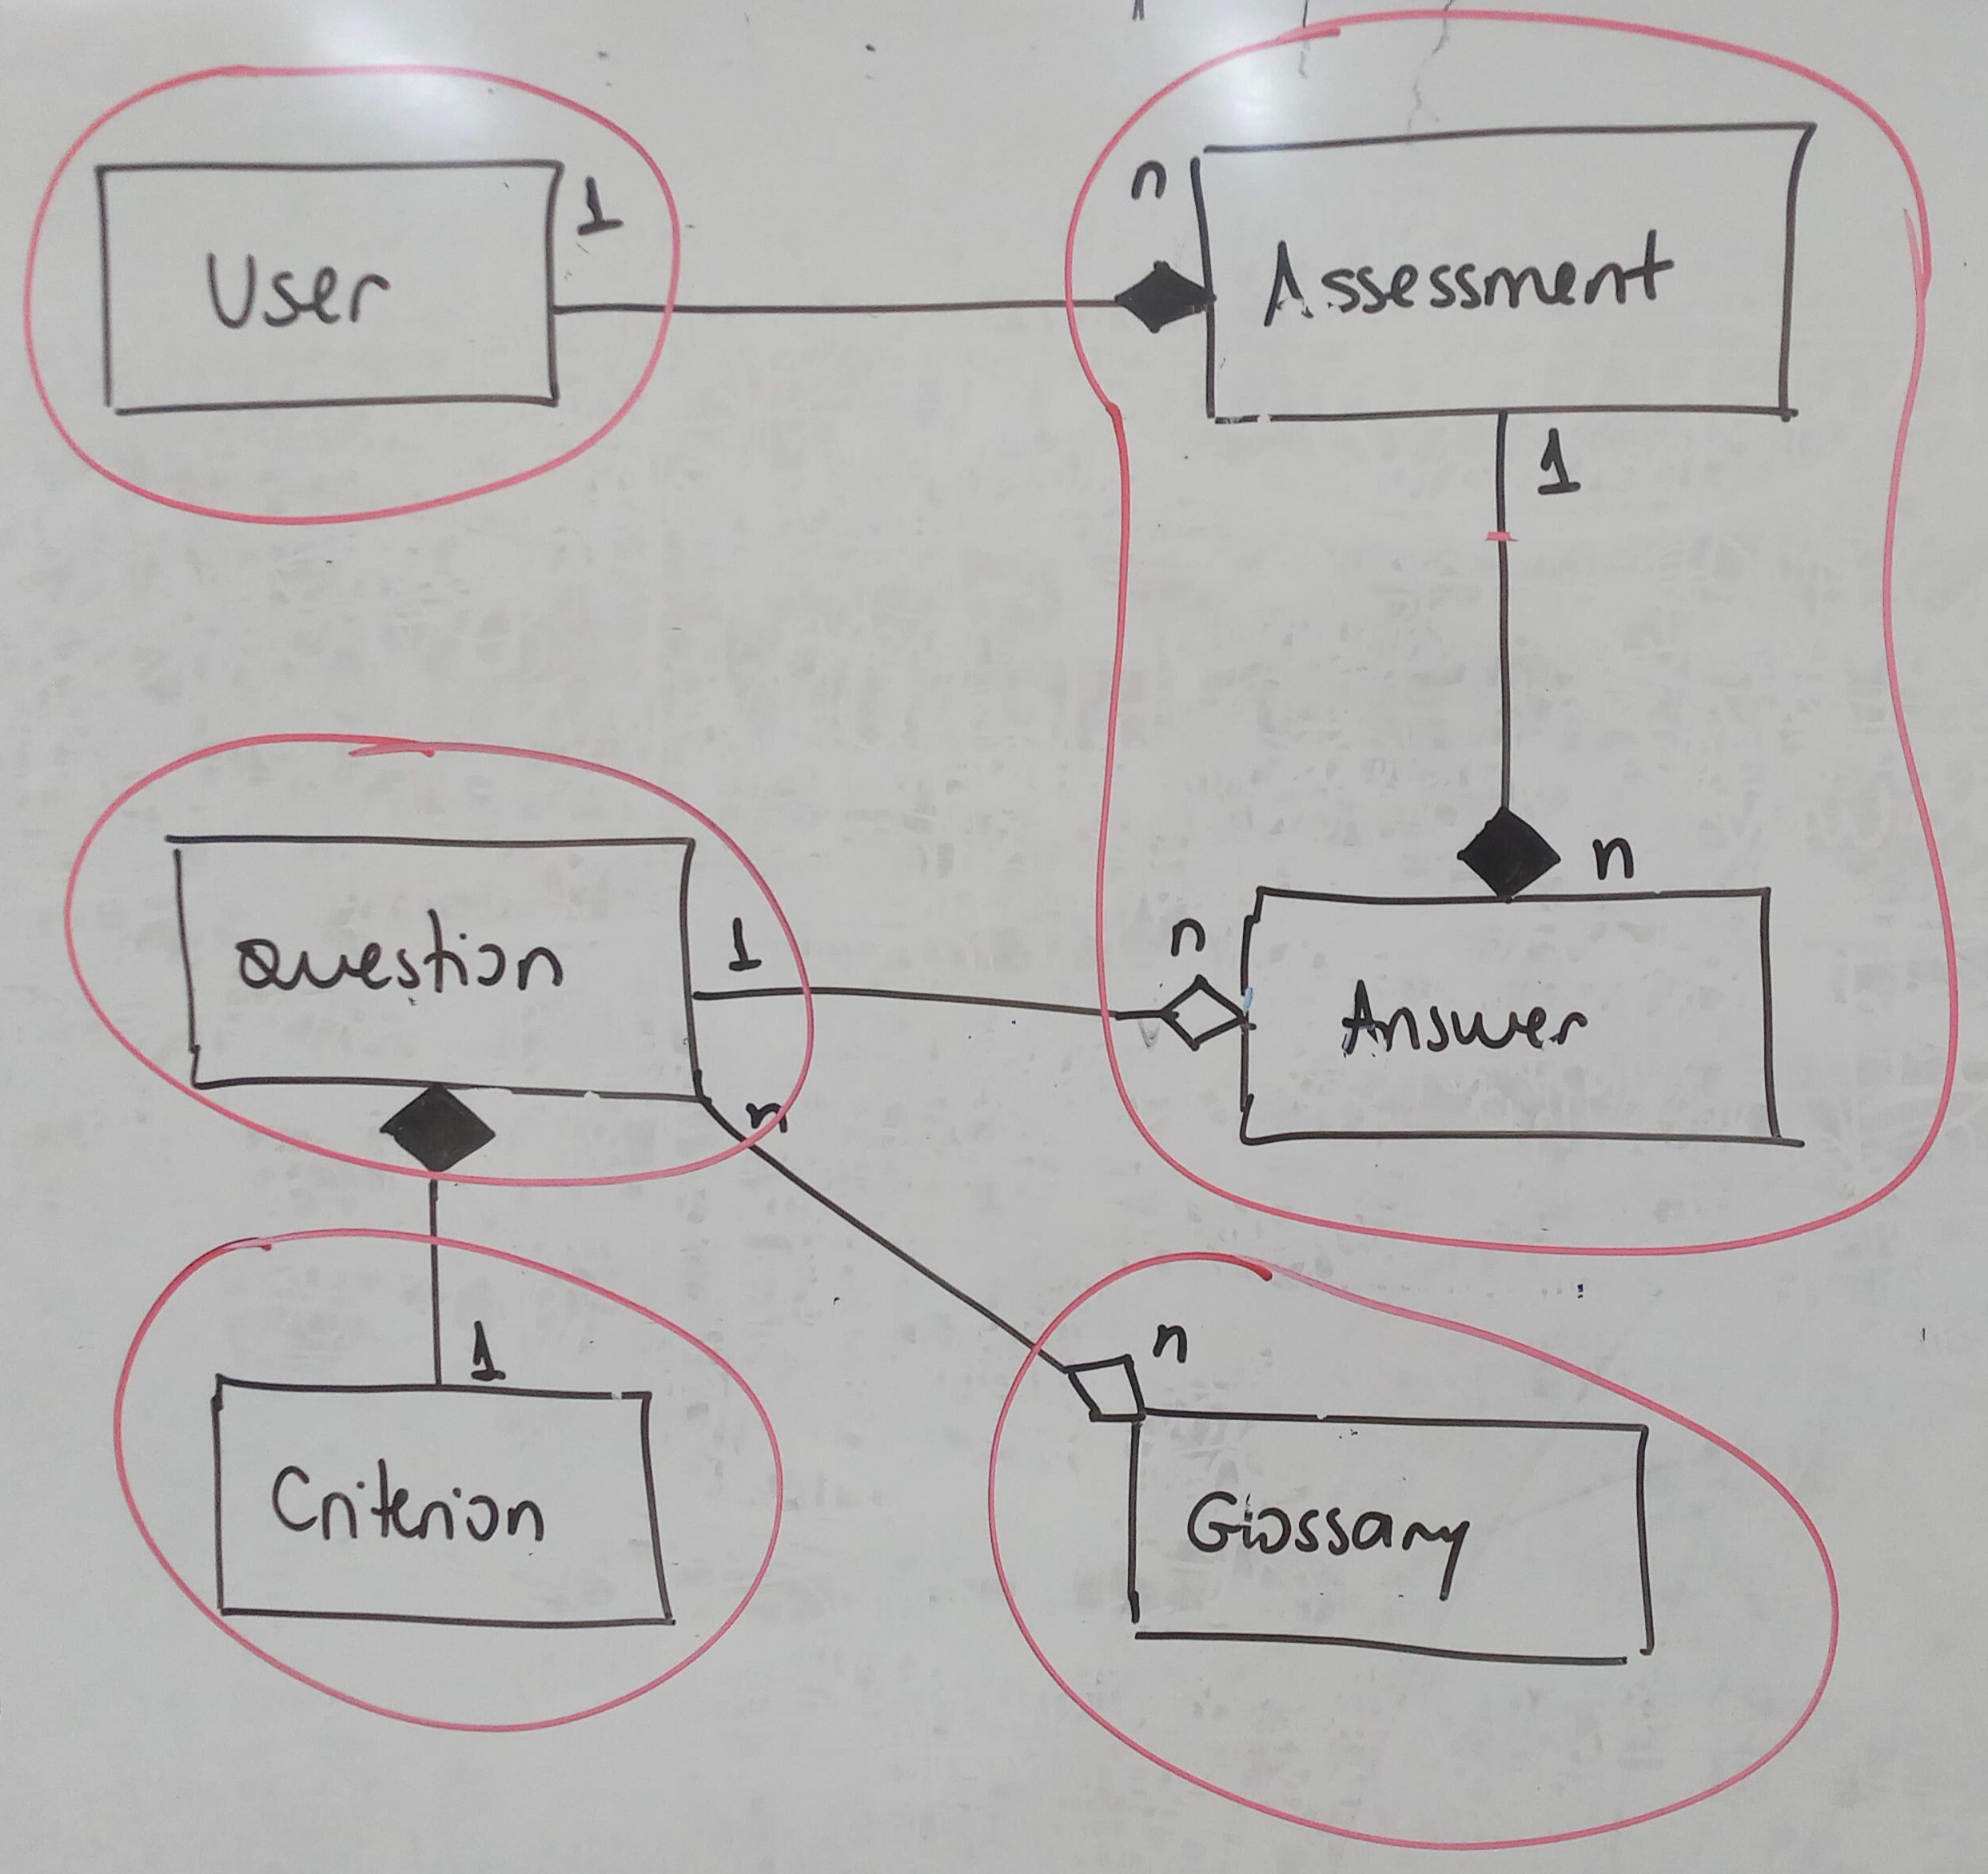 User
1
n
Assessment
1
n
Question
1
n
Answer
n
1
n
Criterion
Glossary